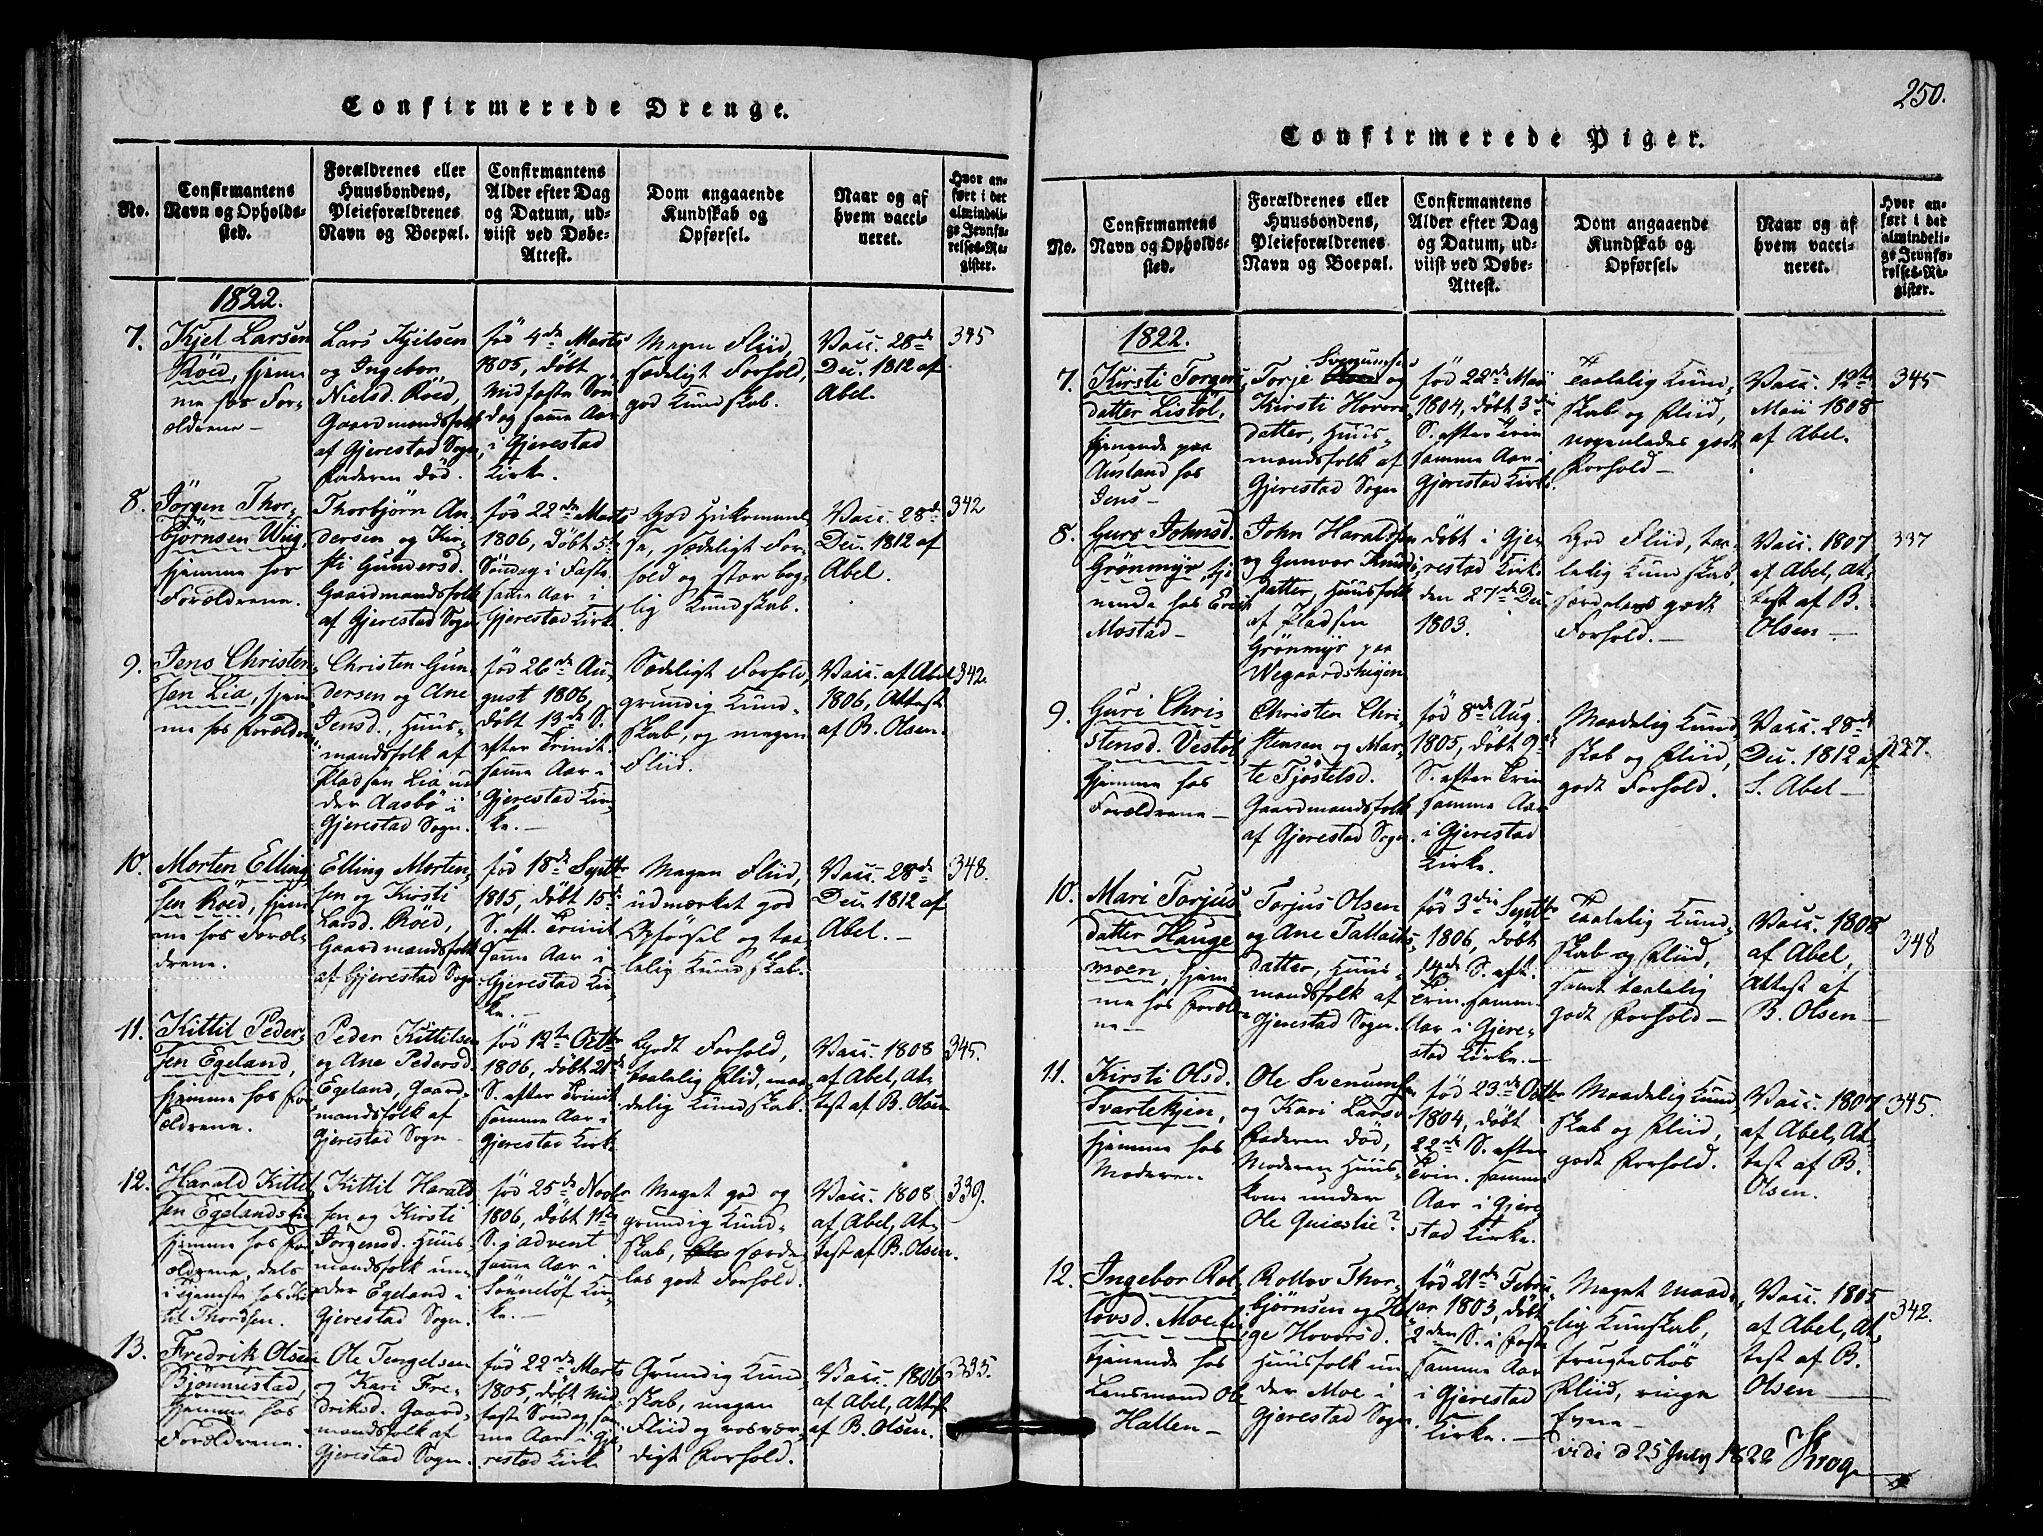 Confirmerede Drenge.
No.
Confirmantens
Navn og Opholds-
sted.
Forældrenes eller
Huusbondens,
Pleieforældrenes
Navn og Boepæl.
Confirmantens
Alder efter Dag
og Datum, ud-
viist ved Døbe-
Attest.
Dom angaaende
Kundskab og
Opførsel.
Naar og af
hvem vacci-
neret.
Hvor an-
ført i det
almindeli-
ge Jevnfø-
relses-Re-
gister.
1822.
7.
Kjel Larsen
Röed, hjem-
me hos For-
ældrene –
Lars Kjelsen
og Ingebor
Nielsd. Röed,
Gaardmandsfolk
af Gjerestad Sogn,
Faderen död.
fød 4de Marts
1805, döbt
Midfaste Søn-
dag samme Aar
i Gjerestad
Kirke.
Megen Fliid,
sædeligt Forhold,
god Kundskab.
Vacc. 28de
Dec. 1812 af
Abel.
345
8.
Jörgen Thor-
björnsen Wiig,
hjemme hos
Forældrene.
Thorbjörn An-
dersen og Kir-
sti Gundersd.
Gaardmandsfolk
af Gjerestad Sogn
fød 22de Marts
1806, Döbt 5te
Söndag i Faste
samme Aar i
Gjerestad Kirke
God Hukommel-
se, sædeligt For-
hold og stor bog-
lig Kundskab.
Vacc. 28de
Dec. 1812 af
Abel.
342
9.
Jens Christen-
sen Lia, hjem-
me hos Forældrene
Christen Gun-
dersen og Ane
Jensd., Huus-
mandsfolk af
Pladsen Lia un-
der Aasbö i
Gjerestad Sogn.
fød 26de Au-
gust 1806,
döbt 13de S.
efter Trinit.
samme Aar i
Gjerestad Kir-
ke. –
Sædeligt Forhold,
grundig Kund-
skab, og megen
Fliid.
Vacc. af Abel
1806, Attest
af B. Olsen.
342.
10.
Morten Elling-
sen Röed, hjem-
me hos Foræl-
drene.
Elling Morten-
sen og Kirsti
Larsd. Röed,
Gaardmandsfolk
af Gjerestad Sogn
fød 18de Septbr
1805, döbt 15de
S. eft. Trinit.
samme Aar i
Gjerestad Kir-
ke. –
Megen Fliid,
udmærket god
Opförsel og taa-
lelig Kundskab.
Vacc. 28de
Dec. 1812 af
Abel. –
348.
11.
Kittil Peder-
sen Egeland,
hjemme hos For-
ældrene.
Peder Kittilsen
og Ane Pedersd.
Egeland, Gaard-
mandsfolk af
Gjerestad Sogn –
fød 12te Octbr
1806, döbt 21de
S. efter Trinit.
samme Aar i
Gjerestad Kirke
Godt Forhold,
taalelig Fliid, maa-
delig Kundskab.
Vacc. 1808
af Abel, At-
test af B. Olsen
345.
12.
Harald Kittil-
sen Egelandslie
hjemme hos For-
ældrene, dels
i Tjeneste hos Kit-
til Thordsen.
Kittil Harald-
sen og Kirsti
Jörgensd. Huus-
mandsfolk un-
der Egeland i
Gjerestad Sogn.
fød 25de Novbr
1806, döbt 1ste
S. i Advent
samme Aar i
Sönnelöf Kir-
ke.
Meget god og
grundig Kund-
skab, særde-
les godt Forhold.
Vacc. 1808
af Abel, At-
test af B. Olsen.
339.
13.
Fredrik Olsen
Björnnestad,
hjemme hos
Forældrene.
Ole Tengelsen
og Kari Fre-
driksd. Gaard-
mandsfolk af
Gjerestad Sogn.
fød 22de Marts
1805, döbt Mid-
faste Söndag sam-
me Aar i Gje-
restad Kirke
Grundig Kund-
skab, megen
Fliid og rosvær-
digt Forhold.
Vacc. 1806
af Abel, Attest
af B. Olsen.
335.
250.
Confirmerede Piger.
No.
Confirmantens
Navn og Opholds-
sted.
Forældrenes eller
Huusbondens,
Pleieforældrenes
Navn og Boepæl.
Confirmantens
Alder efter Dag
og Datum, ud-
viist ved Døbe-
Attest.
Dom angaaende
Kundskab og
Opførsel.
Naar og af
hvem vacci-
neret.
Hvor an-
ført i det
almindeli-
ge Jevnfø-
relses-Re-
gister.
1822.
7.
Kirsti Torges-
datter Listöl,
tjenende paa
Ausland hos
Jens –
Svenumsen
Torje og
Kirsti Hovers-
datter, Huus-
mandsfolk af
Gjerestad Sogn
fød 22de Maii
1804, döbt 3die
S. efter Trin
samme Aar i
Gjerestad Kirke
Taalelig Kund-
skab og Fliid,
nogenledes godt
Forhold –
Vacc. 12te
Maii 1808
af Abel.
345
8.
Guro Johnsd.
Grönmyr, tje-
nende hos
Mostad –
John Haraldsen
og Gunvor Knuds-
datter, Huusfolk
af Pladsen
Grönmyr paa
Wegaardsheijen
döbt i Gje-
restad Kirke
den 27de Dec.
1803.
God Fliid, taa-
lelig Kundskab,
særdeles godt
Forhold. –
Vacc. 1807
af Abel, At-
test af B.
Olsen –
337
9.
Guri Chri-
stensd. Vestöl,
hjemme hos
Forældrene –
Christen Chri-
stensen og Mar-
te Tjöstelsd.
Gaardmandsfolk
af Gjerestad Sogn
fød 8de Aug.
1805, döbt 9de
S. efter Trin
samme Aar
i Gjerestad
Kirke.
Maadelig Kund-
skab og Fliid,
godt Forhold.
Vacc. 28de
Dec. 1812 af
S. Abel –
337.
10.
Mari Torjus-
datter Hauge-
moen, hjem-
me hos Foræl-
ne –
Torjus Olsen
og Ane Tallachs-
datter, Huus-
mandsfolk af
Gjerestad Sogn.
fød 3die Septbr
1806, döbt
14de S. eft.
Trin. samme
Aar i Gjere-
stad Kirke. –
Taalelig Kund-
skab og Fliid,
samt taalelig
godt Forhold –
Vacc. 1808
af Abel,
Attest af
B. Olsen –
348
11.
Kirsti Olsd.
Svartekjen,
hjemme hos
Moderen.
Ole Svenumsen
og Kari Larsd.
Faderen död,
Moderen Huus-
kone under
Ole Quiestie?
fød 23de Octbr
1804, döbt
22de S. efter
Trin. samme
Aar i Gjere-
stad Kirke.
Maadelig Kund-
skab og Fliid,
godt Forhold.
Vacc. 1807
af Abel, At-
test af B.
Olsen.
345.
12.
Ingebor Rol-
lovsd. Moe
tjenende hos
Lensmand Ole
Halten –
Rollov Thor-
björnsen og
Hoversd.
Huusfolk un-
der Moe i
Gjerestad Sogn
fød 21de Febru-
ar 1803, döbt
2den S. i Faste
samme Aar
i Gjerestad
Kirke. –
Meget maade-
lig Kunskab,
frugteslös
Fliid, ringe
Evne –
Vacc. 1805
af Abel, At-
test af B.
Olsen –
342.
vidi d 25 July 1822 Krog